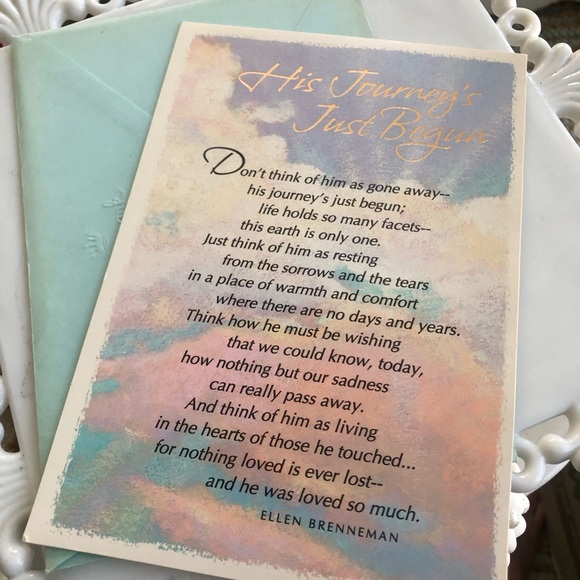 His Journey's
Just Begun
Don't think of him as gone away--
his journey's just begun;
life holds so many facets--
this earth is only one.
Just think of him as resting
from the sorrows and the tears
in a place of warmth and comfort
where there are no days and years.
Think how he must be wishing
that we could know, today,
how nothing but our sadness
can really pass away.
And think of him as living
in the hearts of those he touched...
for nothing loved is ever lost--
and he was loved so much.
ELLEN BRENNEMAN